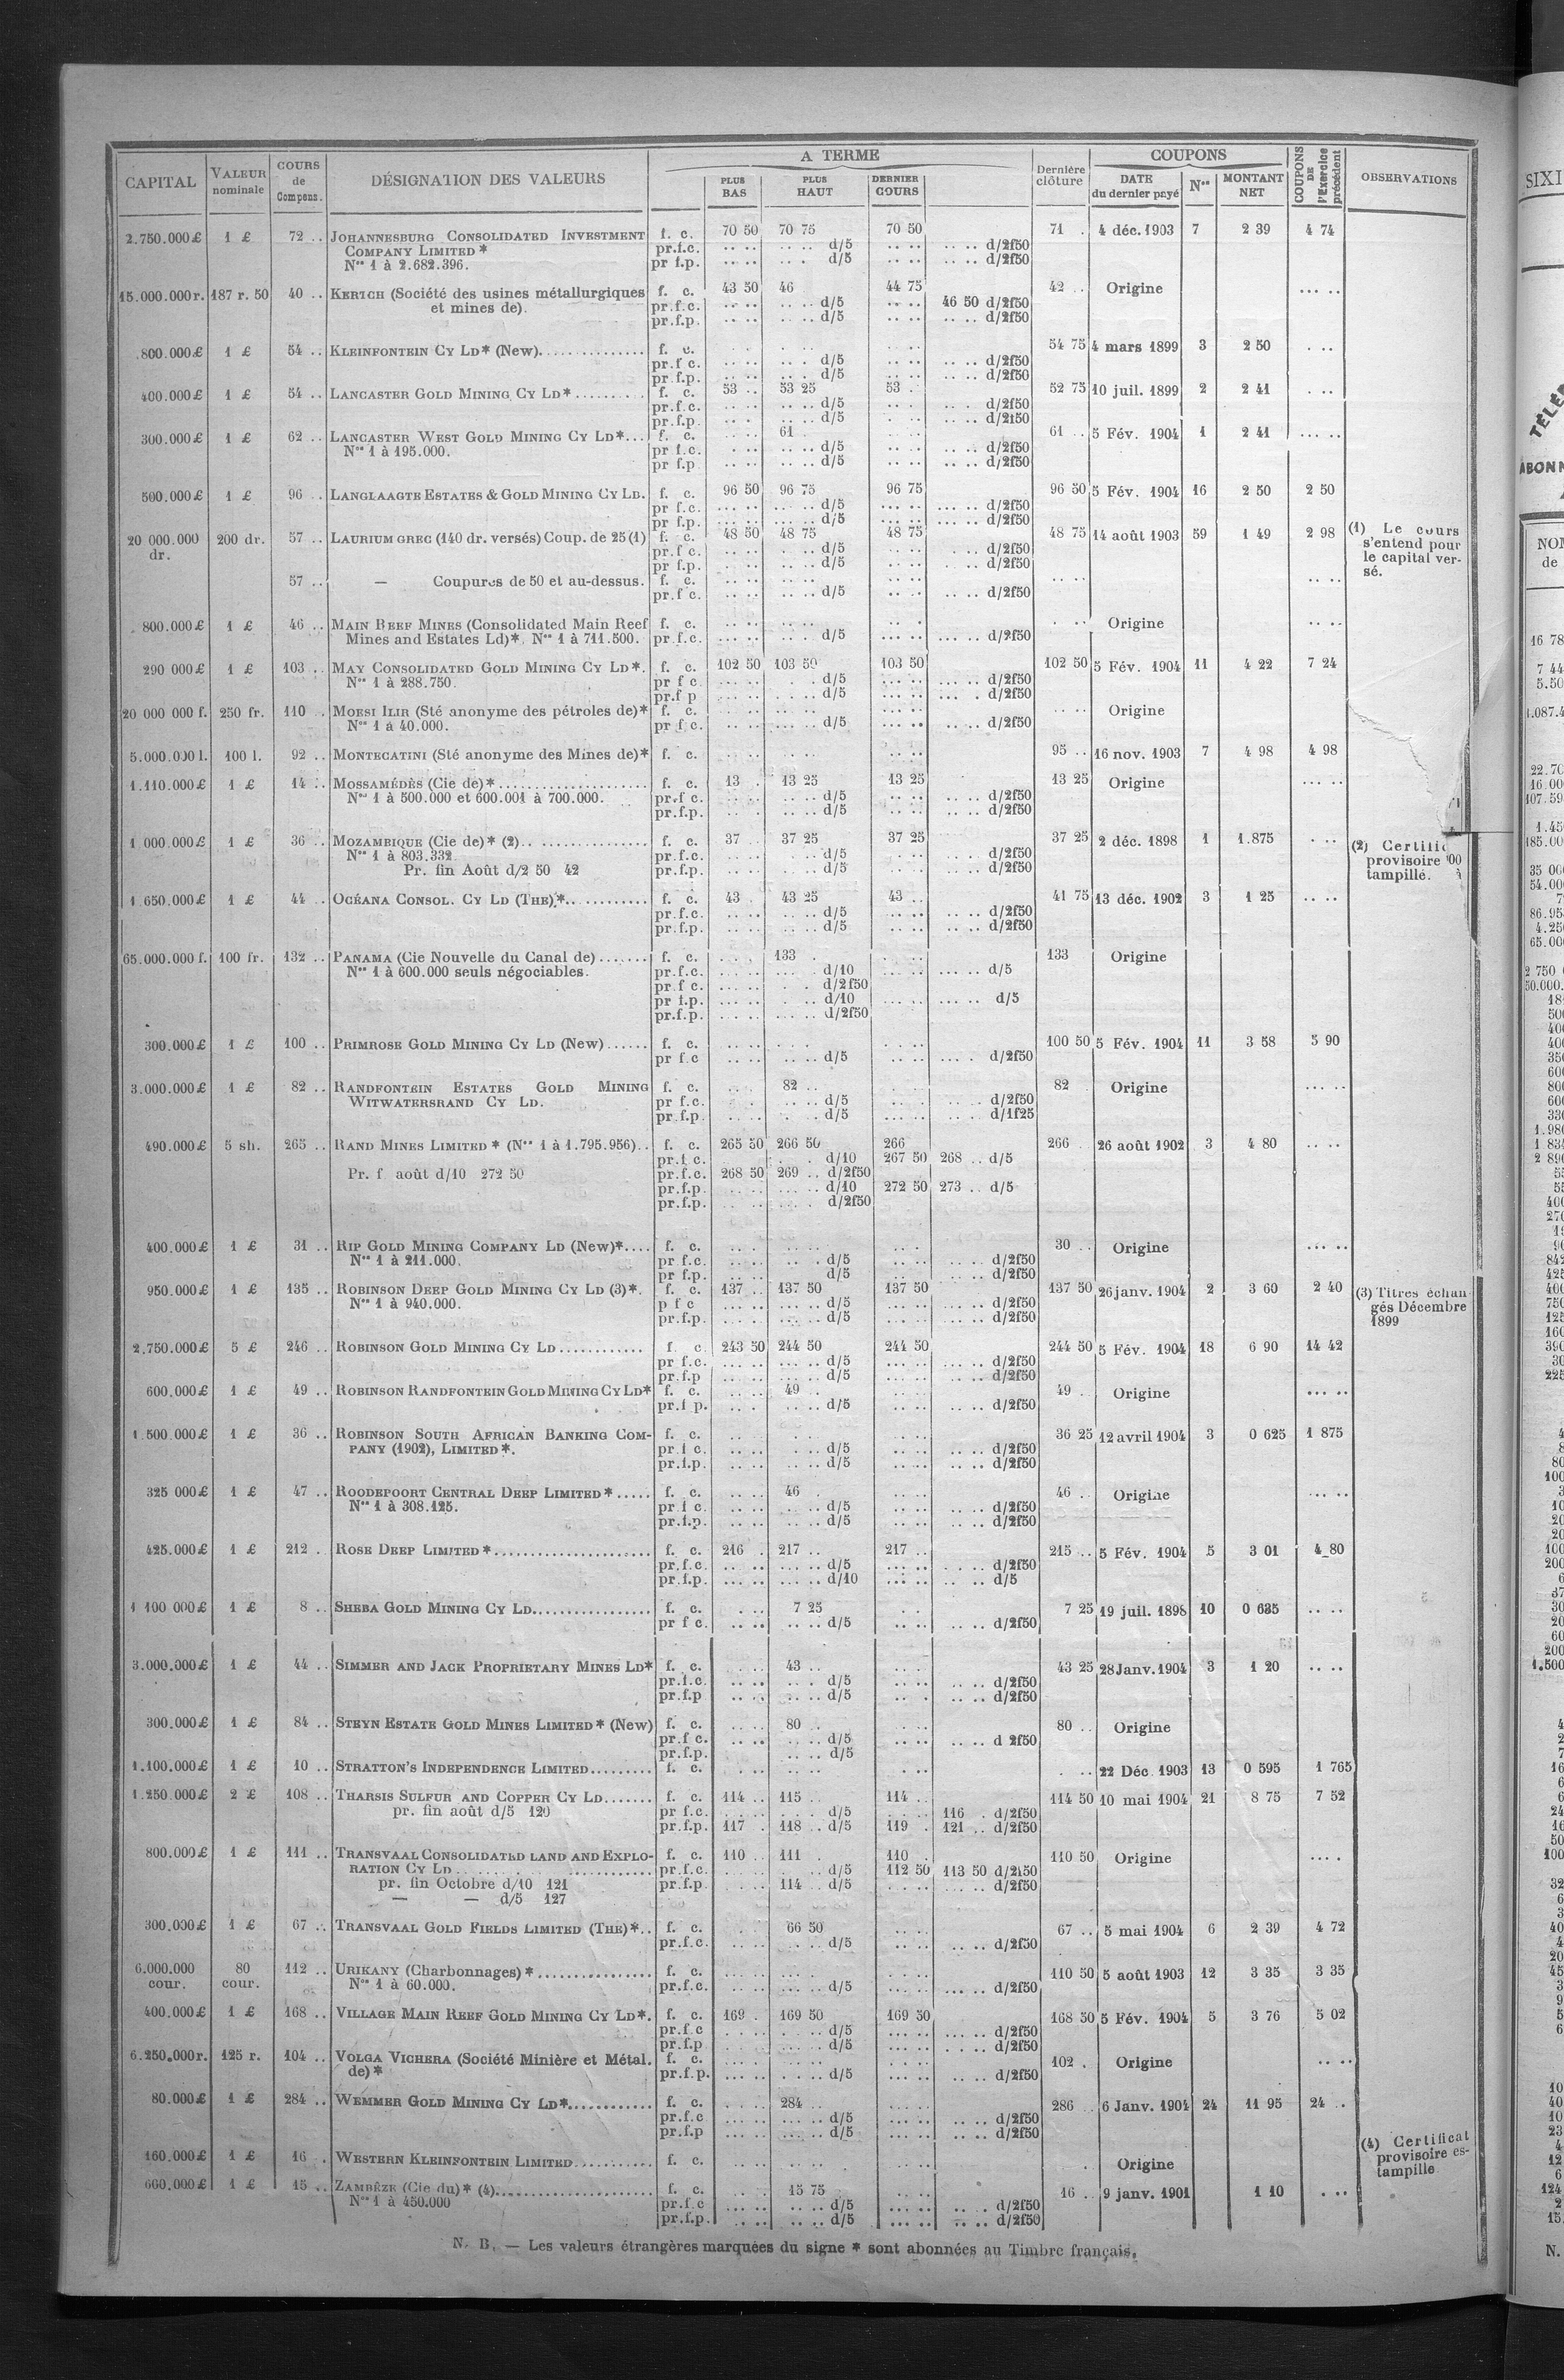 CAPITAL | VALEUR nominale | COURS de Compens. | DÉSIGNATION DES VALEURS | A TERME | PLUS BAS | PLUS HAUT | DERNIER COURS | Dernière clôture | COUPONS | DATE du dernier payé | Nos | MONTANT NET | COUPONS DE l'Exercice précédent | OBSERVATIONS
2.750.000£ 1 £ 72 .. JOHANNESBURG CONSOLIDATED INVESTMENT f. c. 70 50 70 75 70 50 71 . 4 déc. 1903 7 2 39 4 74
COMPANY LIMITED * pr.f.c. d/5 d/2f50
Nos 1 à 2.682.396. pr f.p. d/5 d/2f50
15.000.000r. 187 r. 50 40 .. KERTCH (Société des usines métallurgiques f. c. 43 50 46 44 75 42 .. Origine
et mines de). pr.f.c. d/5 46 50 d/2f50
pr.f.p. d/5 d/2f50
.800.000£ 1 £ 54 .. KLEINFONTEIN CY LD* (New) f. c. 54 75 4 mars 1899 3 2 50
pr.f c. d/5 d/2f50
pr.f.p. d/5 d/2f50
400.000£ 1 £ 54 .. LANCASTER GOLD MINING CY LD* f. c. 53 .. 53 25 53 .. 52 75 10 juil. 1899 2 2 41
pr.f.c. d/5 d/2f50
pr.f.p. d/5 d/2f50
300.000£ 1 £ 62 .. LANCASTER WEST GOLD MINING CY LD*... f. c. 61 61 .. 5 Fév. 1904 1 2 41
Nos 1 à 195.000. pr f.c. d/5 d/2f50
pr f.p d/5 d/2f50
500.000£ 1 £ 96 .. LANGLAAGTE ESTATES & GOLD MINING CY LD. f. c. 96 50 96 75 96 75 96 50 5 Fév. 1904 16 2 50 2 50
pr f.c. d/5 d/2f50
pr f.p. d/5 d/2f50
20 000.000 dr. 200 dr. 57 .. LAURIUM GREC (140 dr. versés) Coup. de 25 (1) f. c. 48 50 48 75 48 75 48 75 14 août 1903 59 1 49 2 98 (1) Le cours s'entend pour le capital versé.
pr.f c. d/5 d/2f50
pr f.p. d/5 d/2f50
57 .. — Coupures de 50 et au-dessus. f. c.
pr.f c. d/5 d/2f50
800.000£ 1 £ 46 .. MAIN REEF MINES (Consolidated Main Reef f. c. Origine
Mines and Estates Ld)*. Nos 1 à 711.500. pr.f.c. d/5 d/2f50
290 000£ 1 £ 103 .. MAY CONSOLIDATED GOLD MINING CY LD*. f. c. 102 50 103 50 103 50 102 50 5 Fév. 1904 11 4 22 7 24
Nos 1 à 288.750. pr f c d/5 d/2f50
pr.f p d/5 d/2f50
20 000 000 f. 250 fr. 110 .. MORSI ILIR (Sté anonyme des pétroles de)* f. c. Origine
Nos 1 à 40.000. pr f c. d/5 d/2f50
5.000.000 l. 100 l. 92 .. MONTECATINI (Sté anonyme des Mines de)* f. c. 95 .. 16 nov. 1903 7 4 98 4 98
1.110.000£ 1 £ 14 .. MOSSAMÉDÈS (Cie de)* f. c. 13 . 13 25 13 25 13 25 Origine
Nos 1 à 500.000 et 600.001 à 700.000. pr.f c. d/5 d/2f50
pr.f.p. d/5 d/2f50
1 000.000£ 1 £ 36 .. MOZAMBIQUE (Cie de)* (2) f. c. 37 37 25 37 25 37 25 2 déc. 1898 1 1.875 (2) Certific
Nos 1 à 803.332. pr.f.c. d/5 d/2f50 provisoire
Pr. fin Août d/2 50 42 pr.f.p. d/5 d/2f50 tampillé.
1 650.000£ 1 £ 44 .. OCÉANA CONSOL. CY LD (THE)* f. c. 43 . 43 25 43 .. 41 75 13 déc. 1902 3 1 25
pr.f.c. d/5 d/2f50
pr.f.p. d/5 d/2f50
65.000.000 f. 100 fr. 132 .. PANAMA (Cie Nouvelle du Canal de) f. c. 133 . 133 Origine
Nos 1 à 600.000 seuls négociables. pr.f.c. d/10 d/5
pr.f c. d/2f50
pr f.p. d/10 d/5
pr.f.p. d/2f50
300.000£ 1 £ 100 .. PRIMROSE GOLD MINING CY LD (New) f. c. 100 50 5 Fév. 1904 11 3 58 5 90
pr f.c d/5 d/2f50
3.000.000£ 1 £ 82 .. RANDFONTEIN ESTATES GOLD MINING f. c. 82 .. 82 Origine
WITWATERSRAND CY LD. pr f.c. d/5 d/2f50
pr.f.p. d/5 d/1f25
490.000£ 5 sh. 265 .. RAND MINES LIMITED * (Nos 1 à 1.795.956).. f. c. 265 50 266 50 266 266 . 26 août 1902 3 4 80
pr.f c. d/10 267 50 268 .. d/5
Pr. f août d/10 272 50 pr.f.c. 268 50 269 .. d/2f50
pr.f.p. d/10 272 50 273 .. d/5
pr.f.p. d/2f50
400.000£ 1 £ 31 .. RIP GOLD MINING COMPANY LD (New)*.... f. c. 30 .. Origine
Nos 1 à 211.000. pr f.c. d/5 d/2f50
pr f.p. d/5 d/2f50
950.000£ 1 £ 135 .. ROBINSON DEEP GOLD MINING CY LD (3)*. f. c. 137 .. 137 50 137 50 137 50 26 janv. 1904 2 3 60 2 40 (3) Titres échangés Décembre 1899
Nos 1 à 940.000. p f c d/5 d/2f50
pr.f.p. d/5 d/2f50
2.750.000£ 5 £ 246 .. ROBINSON GOLD MINING CY LD f. c. 243 50 244 50 244 50 244 50 5 Fév. 1904 18 6 90 14 42
pr f.c. d/5 d/2f50
pr.f.p d/5 d/2f50
600.000£ 1 £ 49 .. ROBINSON RANDFONTEIN GOLD MINING CY LD* f. c. 49 .. 49 . Origine
pr.f p. d/5 d/2f50
1.500.000£ 1 £ 36 .. ROBINSON SOUTH AFRICAN BANKING COM- f. c. 36 25 12 avril 1904 3 0 625 1 875
PANY (1902), LIMITED*. pr.f c. d/5 d/2f50
pr.f.p. d/5 d/2f50
325 000£ 1 £ 47 .. ROODEPOORT CENTRAL DEEP LIMITED* f. c. 46 . 46 .. Origine
Nos 1 à 308.125. pr f c d/5 d/2f50
pr.f.p. d/5 d/2f50
425.000£ 1 £ 212 .. ROSE DEEP LIMITED* f. c. 216 . 217 .. 217 .. 215 .. 5 Fév. 1904 5 3 01 4 80
pr.f.c. d/5 d/2f50
pr.f.p. d/10 d/5
1 100 000£ 1 £ 8 .. SHEBA GOLD MINING CY LD f. c. 7 25 7 25 19 juil. 1898 10 0 635
pr f c. d/5 d/2f50
3.000.000£ 1 £ 44 .. SIMMER AND JACK PROPRIETARY MINES LD* f. c. 43 .. 43 25 28 Janv. 1904 3 1 20
pr.f.c. d/5 d/2f50
pr.f.p d/5 d/2f50
300.000£ 1 £ 84 .. STEYN ESTATE GOLD MINES LIMITED* (New) f. c. 80 . 80 .. Origine
pr.f c. d/5 d 2f50
pr.f.p. d/5
1.100.000£ 1 £ 10 .. STRATTON'S INDEPENDENCE LIMITED f. c. 22 Déc. 1903 13 0 595 1 765
1.250.000£ 2 £ 108 .. THARSIS SULFUR AND COPPER CY LD f. c. 114 .. 115 .. 114 .. 114 50 10 mai 1904 21 8 75 7 52
pr. fin août d/5 120 pr f.c. d/5 116 . d/2f50
pr.f.p. 117 . 118 .. d/5 119 . 121 .. d/2f50
800.000£ 1 £ 111 .. TRANSVAAL CONSOLIDATED LAND AND EXPLO- f. c. 110 .. 111 . 110 110 50 Origine
RATION CY LD pr.f.c. d/5 112 50 113 50 d/2f50
pr. fin Octobre d/10 121 pr.f.p. 114 .. d/5 d/2f50
— — d/5 127
300.000£ 1 £ 67 .. TRANSVAAL GOLD FIELDS LIMITED (THE)*.. f. c. 66 50 67 .. 5 mai 1904 6 2 39 4 72
pr.f.c. d/5 d/2f50
6.000.000 cour. 80 cour. 112 .. URIKANY (Charbonnages)* f. c. 110 50 5 août 1903 12 3 35 3 35
Nos 1 à 60.000. pr.f.c. d/5 d/2f50
400.000£ 1 £ 168 .. VILLAGE MAIN REEF GOLD MINING CY LD*. f. c. 169 . 169 50 169 50 168 50 5 Fév. 1904 5 3 76 5 02
pr.f c d/5 d/2f50
pr.f.p d/5 d/2f50
6.250.000r. 125 r. 104 .. VOLGA VICHERA (Société Minière et Métal. f. c. 102 . Origine
de)* pr.f.p. d/5 d/2f50
80.000£ 1 £ 284 .. WEMMER GOLD MINING CY LD* f. c. 284 286 .. 6 Janv. 1904 24 11 95 24 ..
pr.f.c d/5 d/2f50
pr.f.p d/5 d/2f50
160.000£ 1 £ 16 . WESTERN KLEINFONTEIN LIMITED f. c. Origine (4) Certificat provisoire estampille
660.000£ 1 £ 15 .. ZAMBÈZE (Cie du)* (4) f. c. 15 75 16 .. 9 janv. 1901 1 10
Nos 1 à 450.000 pr.f.c d/5 d/2f50
pr.f.p. d/5 d/2f50
N. B. — Les valeurs étrangères marquées du signe * sont abonnées au Timbre français.